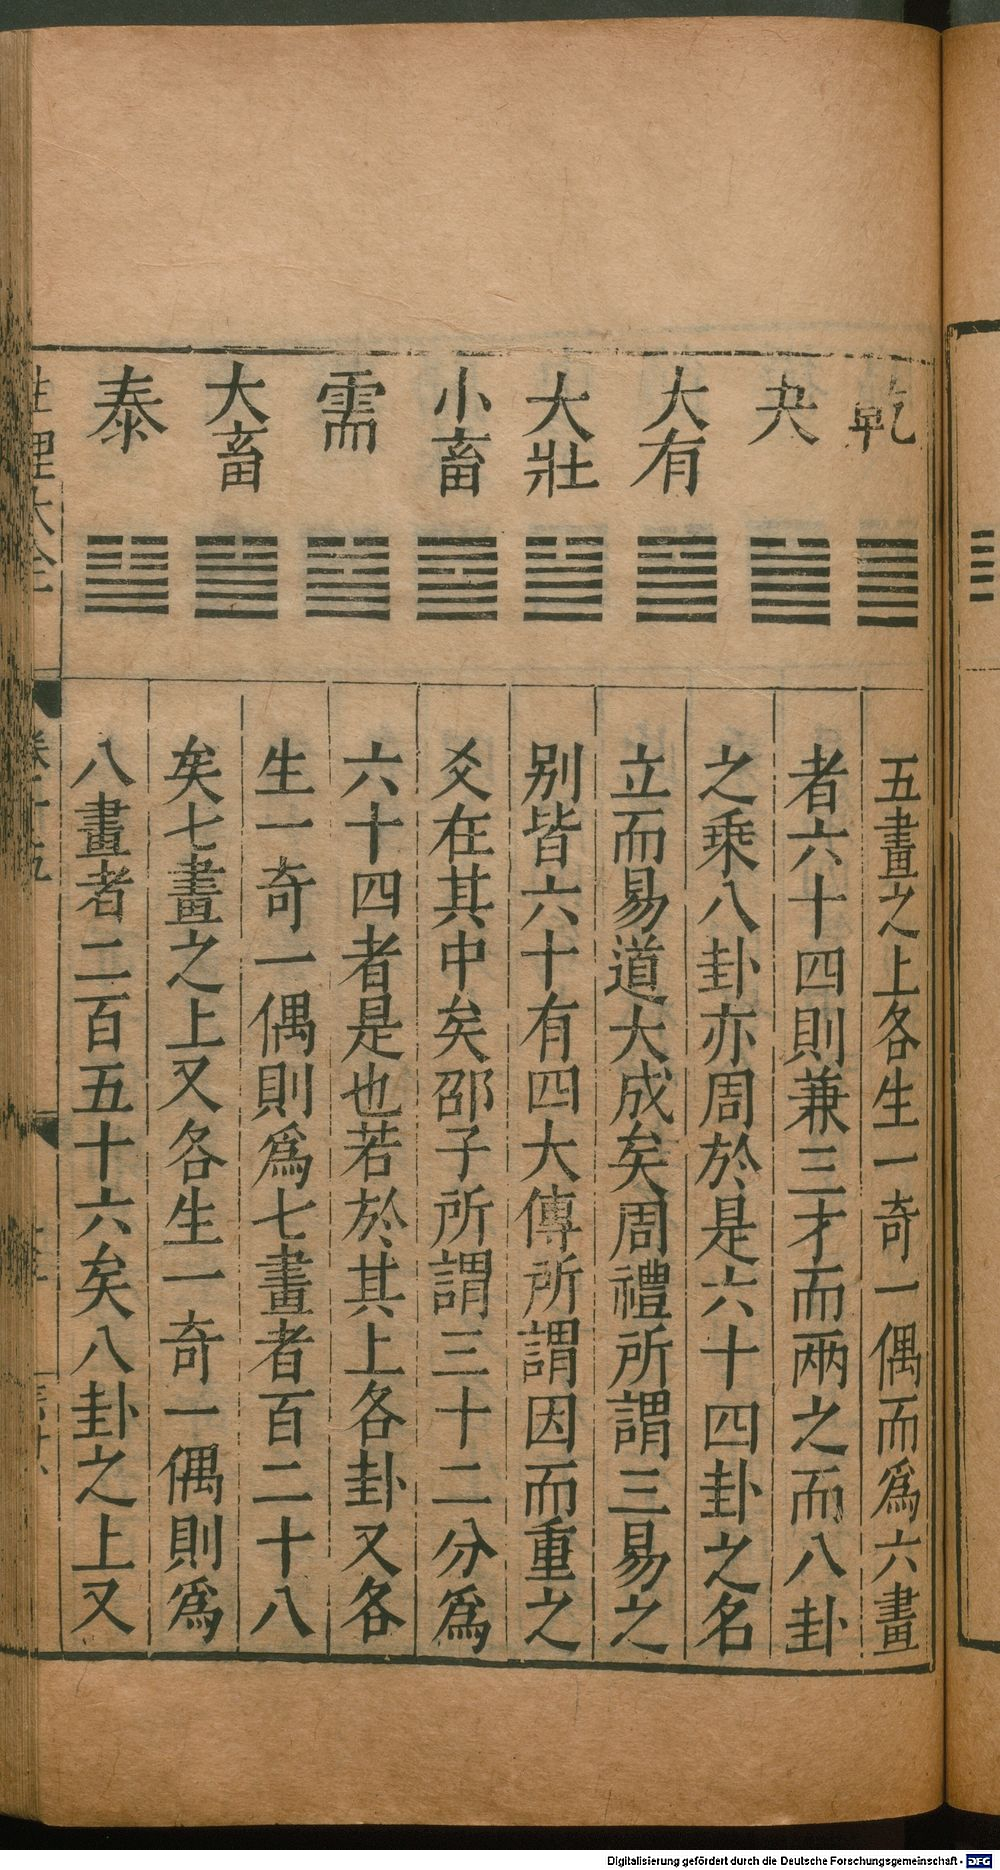 乾
夬
大有
大壯
小畜
需
大畜
泰
五畫之上各生一奇一偶而爲六畫
者六十四則兼三才而兩之而八卦
之乘八卦亦周於是六十四卦之名
立而易道大成矣周禮所謂三易之
別皆六十有四大傳所謂因而重之
爻在其中矣邵子所謂三十二分爲
六十四者是也若於其上各卦又各
生一奇一偶則爲七畫者百二十八
矣七畫之上又各生一奇一偶則爲
八畫者二百五十六矣八卦之上又
性理大全
Digitalisierung gefördert durch die Deutsche Forschungsgemeinschaft - DFG